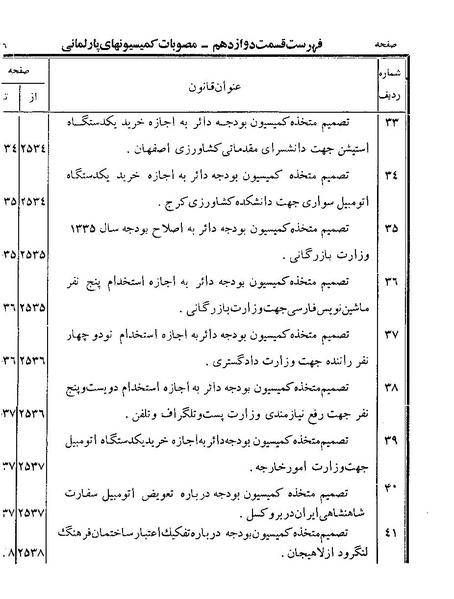 صفحه فهرست قسمت دوازدهم ــ مصوبات کمیسیونهای پارلمانی ٦
شماره ردیف عنوان قانون صفحه
از ت
٣٣ تصمیم متخذه کمیسیون بودجه دائر به اجازه خرید یکدستگاه
استیشن جهت دانشسرای مقدماتی کشاورزی اصفهان . ٢٥٣٤ ٣٤
٣٤ تصمیم متخذه کمیسیون بودجه دائر به اجازه خرید یکدستگاه
اتومبیل سواری جهت دانشکده کشاورزی کرج . ٢٥٣٤ ٣٥
٣٥ تصمیم متخذه کمیسیون بودجه دائر به اصلاح بودجه سال ١٣٣٥
وزارت بازرگانی . ٢٥٣٥ ٣٥
٣٦ تصمیم متخذه کمیسیون بودجه دائر به اجازه استخدام پنج نفر
ماشین نویس فارسی جهت وزارت بازرگانی . ٢٥٣٥ ٣٦
٣٧ تصمیم متخذه کمیسیون بودجه دائر به اجازه استخدام نود و چهار
نفر راننده جهت وزارت دادگستری . ٢٥٣٦ ٣٦
٣٨ تصمیم متخذه کمیسیون بودجه دائر به اجازه استخدام دویست و پنج
نفر جهت رفع نیازمندی وزارت پست و تلگراف و تلفن . ٢٥٣٦ ٣٧
٣٩ تصمیم متخذه کمیسیون بودجه دائر به اجازه خرید یکدستگاه اتومبیل
جهت وزارت امور خارجه . ٢٥٣٧ ٣٧
٤٠ تصمیم متخذه کمیسیون بودجه درباره تعویض اتومبیل سفارت
شاهنشاهی ایران در بروکسل . ٢٥٣٧ ٣٧
٤١ تصمیم متخذه کمیسیون بودجه درباره تفکیک اعتبار ساختمان فرهنگ
لنگرود از لاهیجان . ٢٥٣٨ ٨